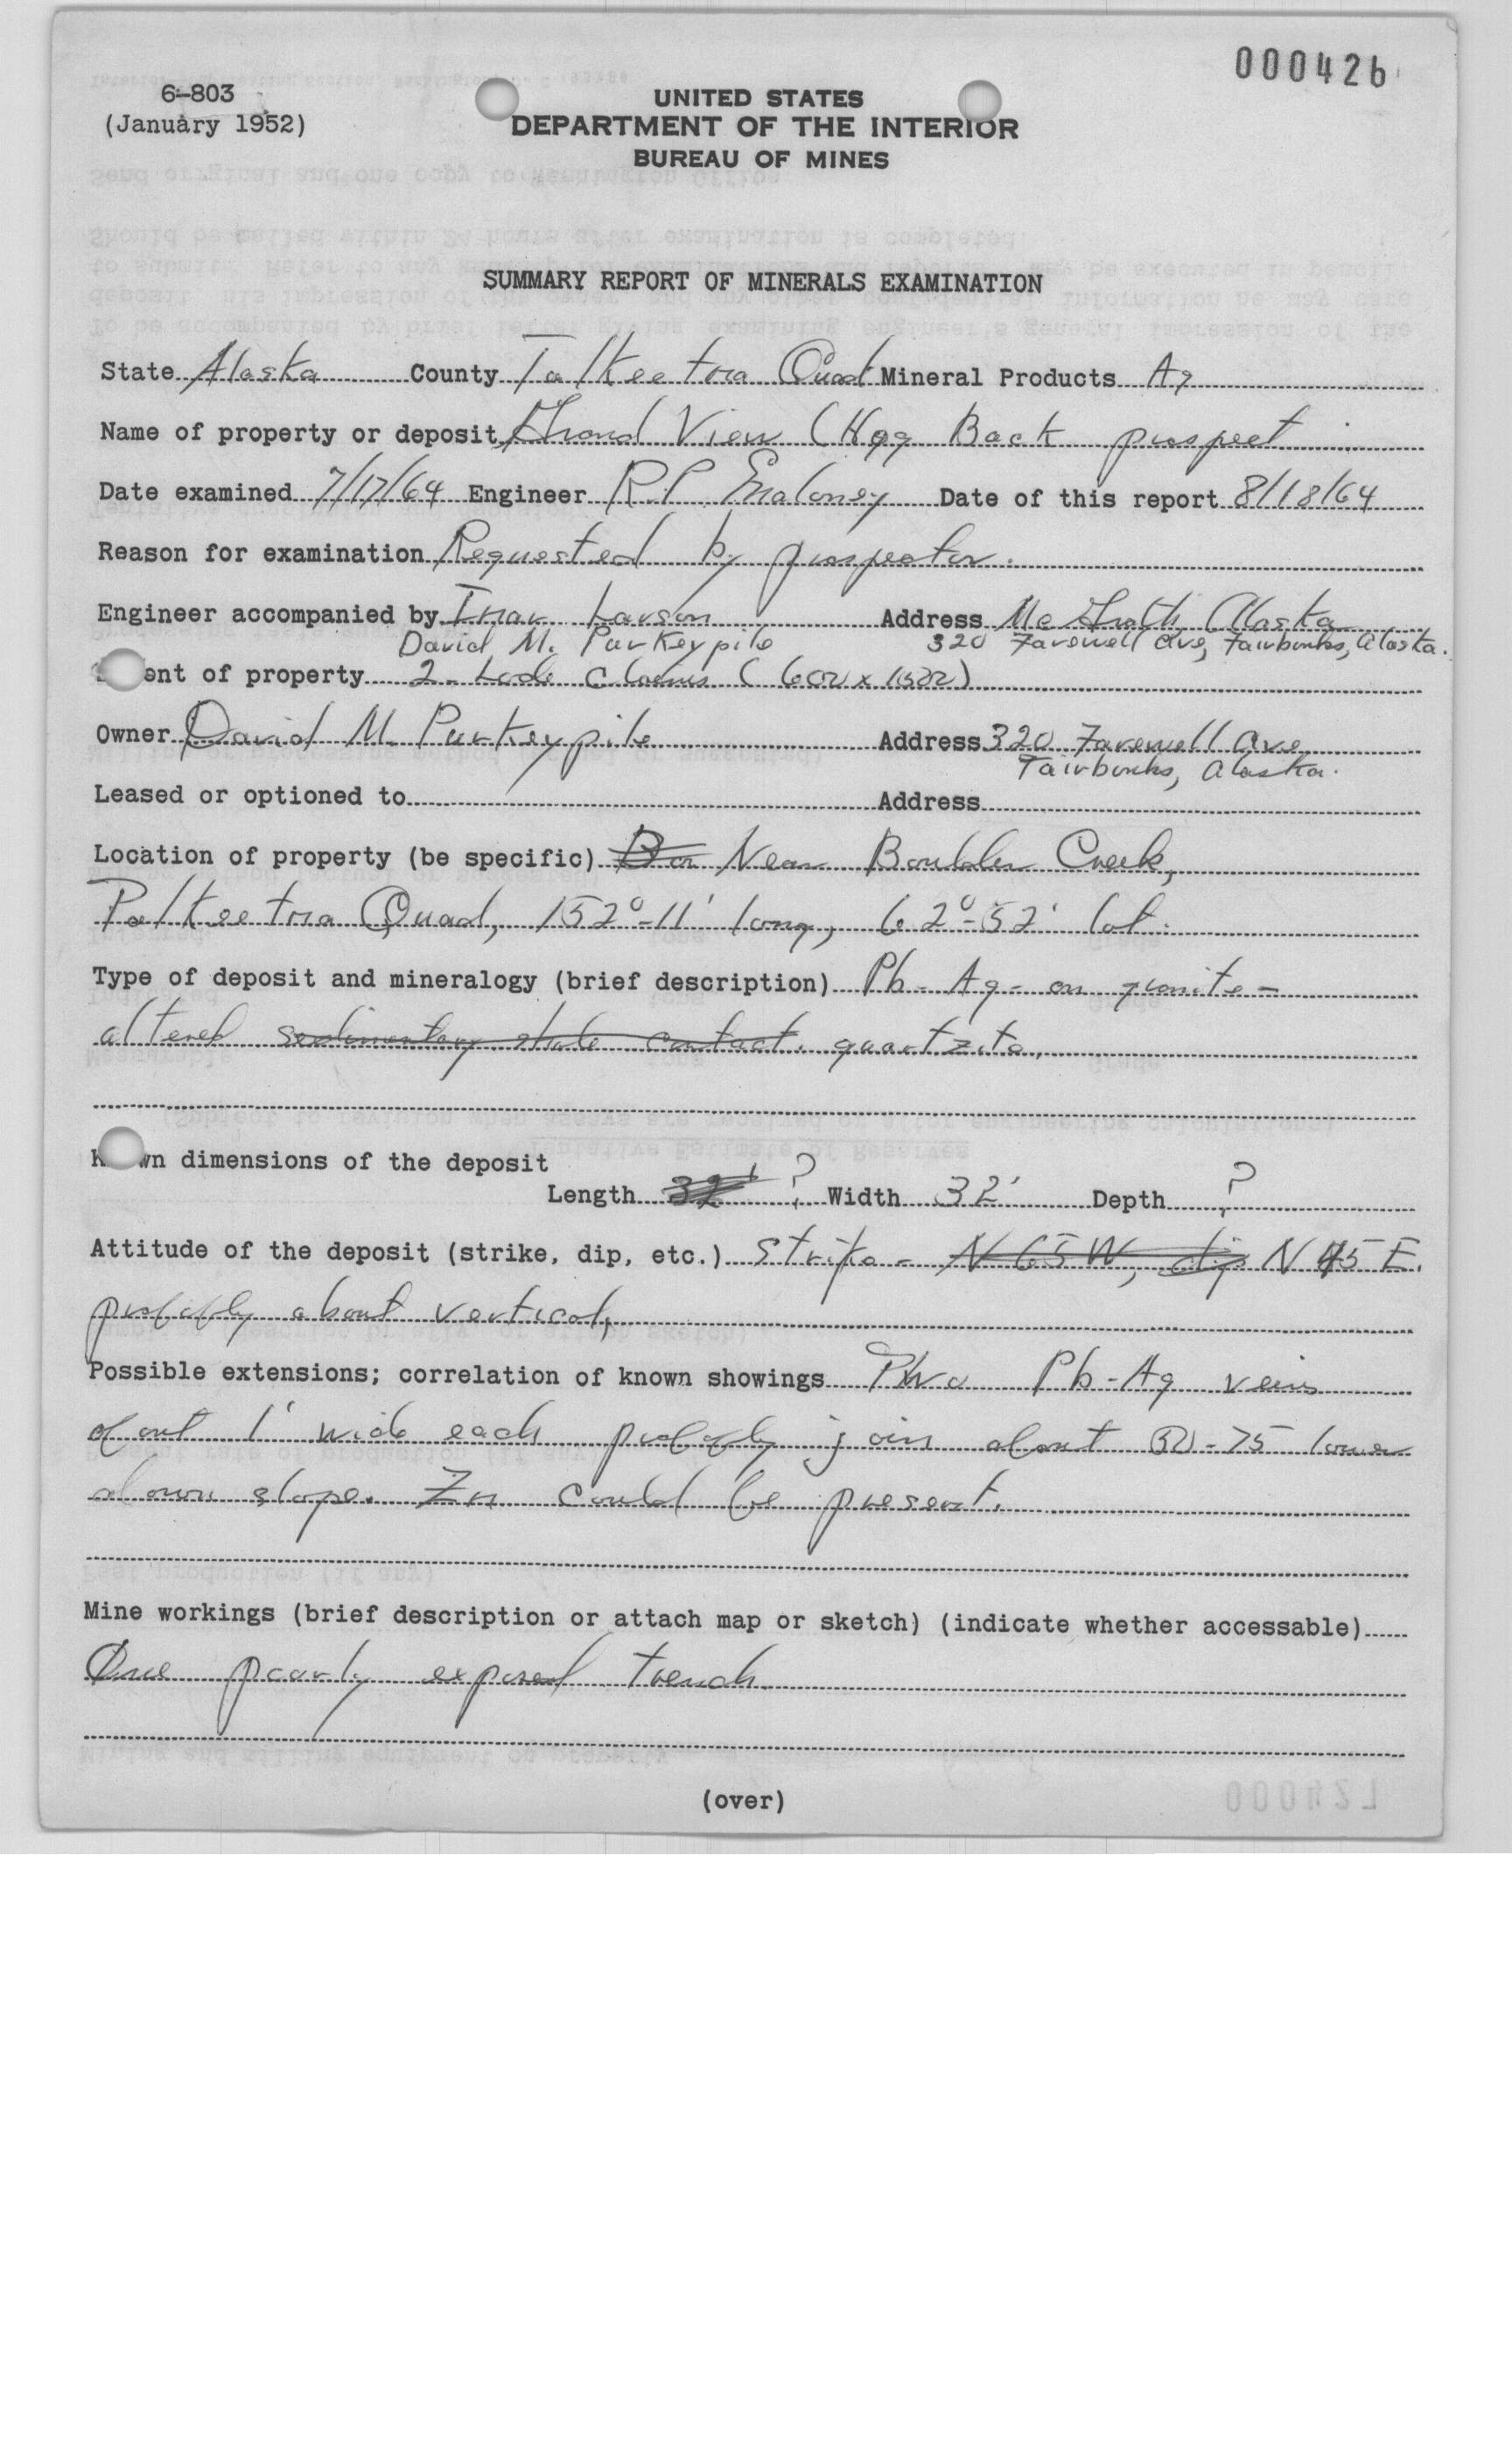 000426
6-803
(January 1952)
UNITED STATES
DEPARTMENT OF THE INTERIOR
BUREAU OF MINES
SUMMARY REPORT OF MINERALS EXAMINATION
State Alaska County Talkeetna Quad Mineral Products Ag
Name of property or deposit Grand View (Hog Back prospect
Date examined 7/17/64 Engineer R.P. Maloney Date of this report 8/18/64
Reason for examination Requested by prospector.
Engineer accompanied by Larson Address Mc Grath, Alaska
David M. Purkeypile 320 Farewell Ave, Fairbanks, Alaska.
ent of property 2 - Lode Claims (600 x 1500)
Owner David M. Purkeypile Address 320 Farewell Ave
Fairbanks, Alaska.
Leased or optioned to Address
Location of property (be specific) Near Boulder Creek,
Talkeetna Quad, 152°-11' long, 62°-52' lat.
Type of deposit and mineralogy (brief description) Pb - Ag - on granite -
altered sedimentary shale contact. quartzite.
K wn dimensions of the deposit
Length 32' ? Width 32' Depth ?
Attitude of the deposit (strike, dip, etc.) Strike - N 65 W, dip N 45 E.
probably about vertical,
Possible extensions; correlation of known showings Two Pb-Ag veins
about 1' wide each probably join about 50-75 lower
down slope. Zn could be present.
Mine workings (brief description or attach map or sketch) (indicate whether accessable)
One poorly exposed trench.
(over)